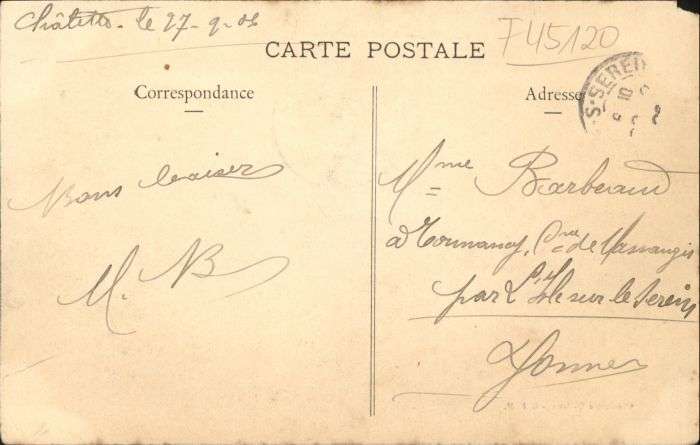 Châlette - le 27-9-08
F45120
CARTE POSTALE
Correspondance
Adresse
S-SEREIN
10
Bons baisers
M. B
Mme Barbeaud
à Tormancy, Cne de Massangis
par L'Isle sur le Serein
Yonne